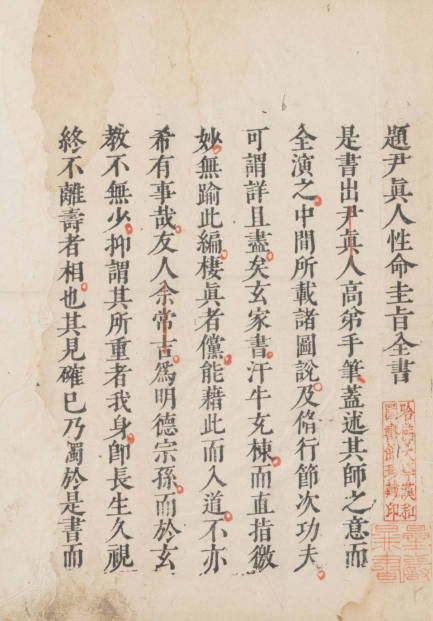 題尹眞人性命圭旨全書
是書出尹眞人高弟手筆蓋述其師之意而
全演之中間所載諸圖說及脩行節次功夫
可謂詳且盡矣玄家書汗牛充棟而直指微
妙無踰此編棲眞者儻能藉此而入道不亦
希有事哉友人余常吉爲明德宗孫而於玄
教不無少抑謂其所重者我身卽長生久視
終不離壽者相也其見確已乃獨於是書而